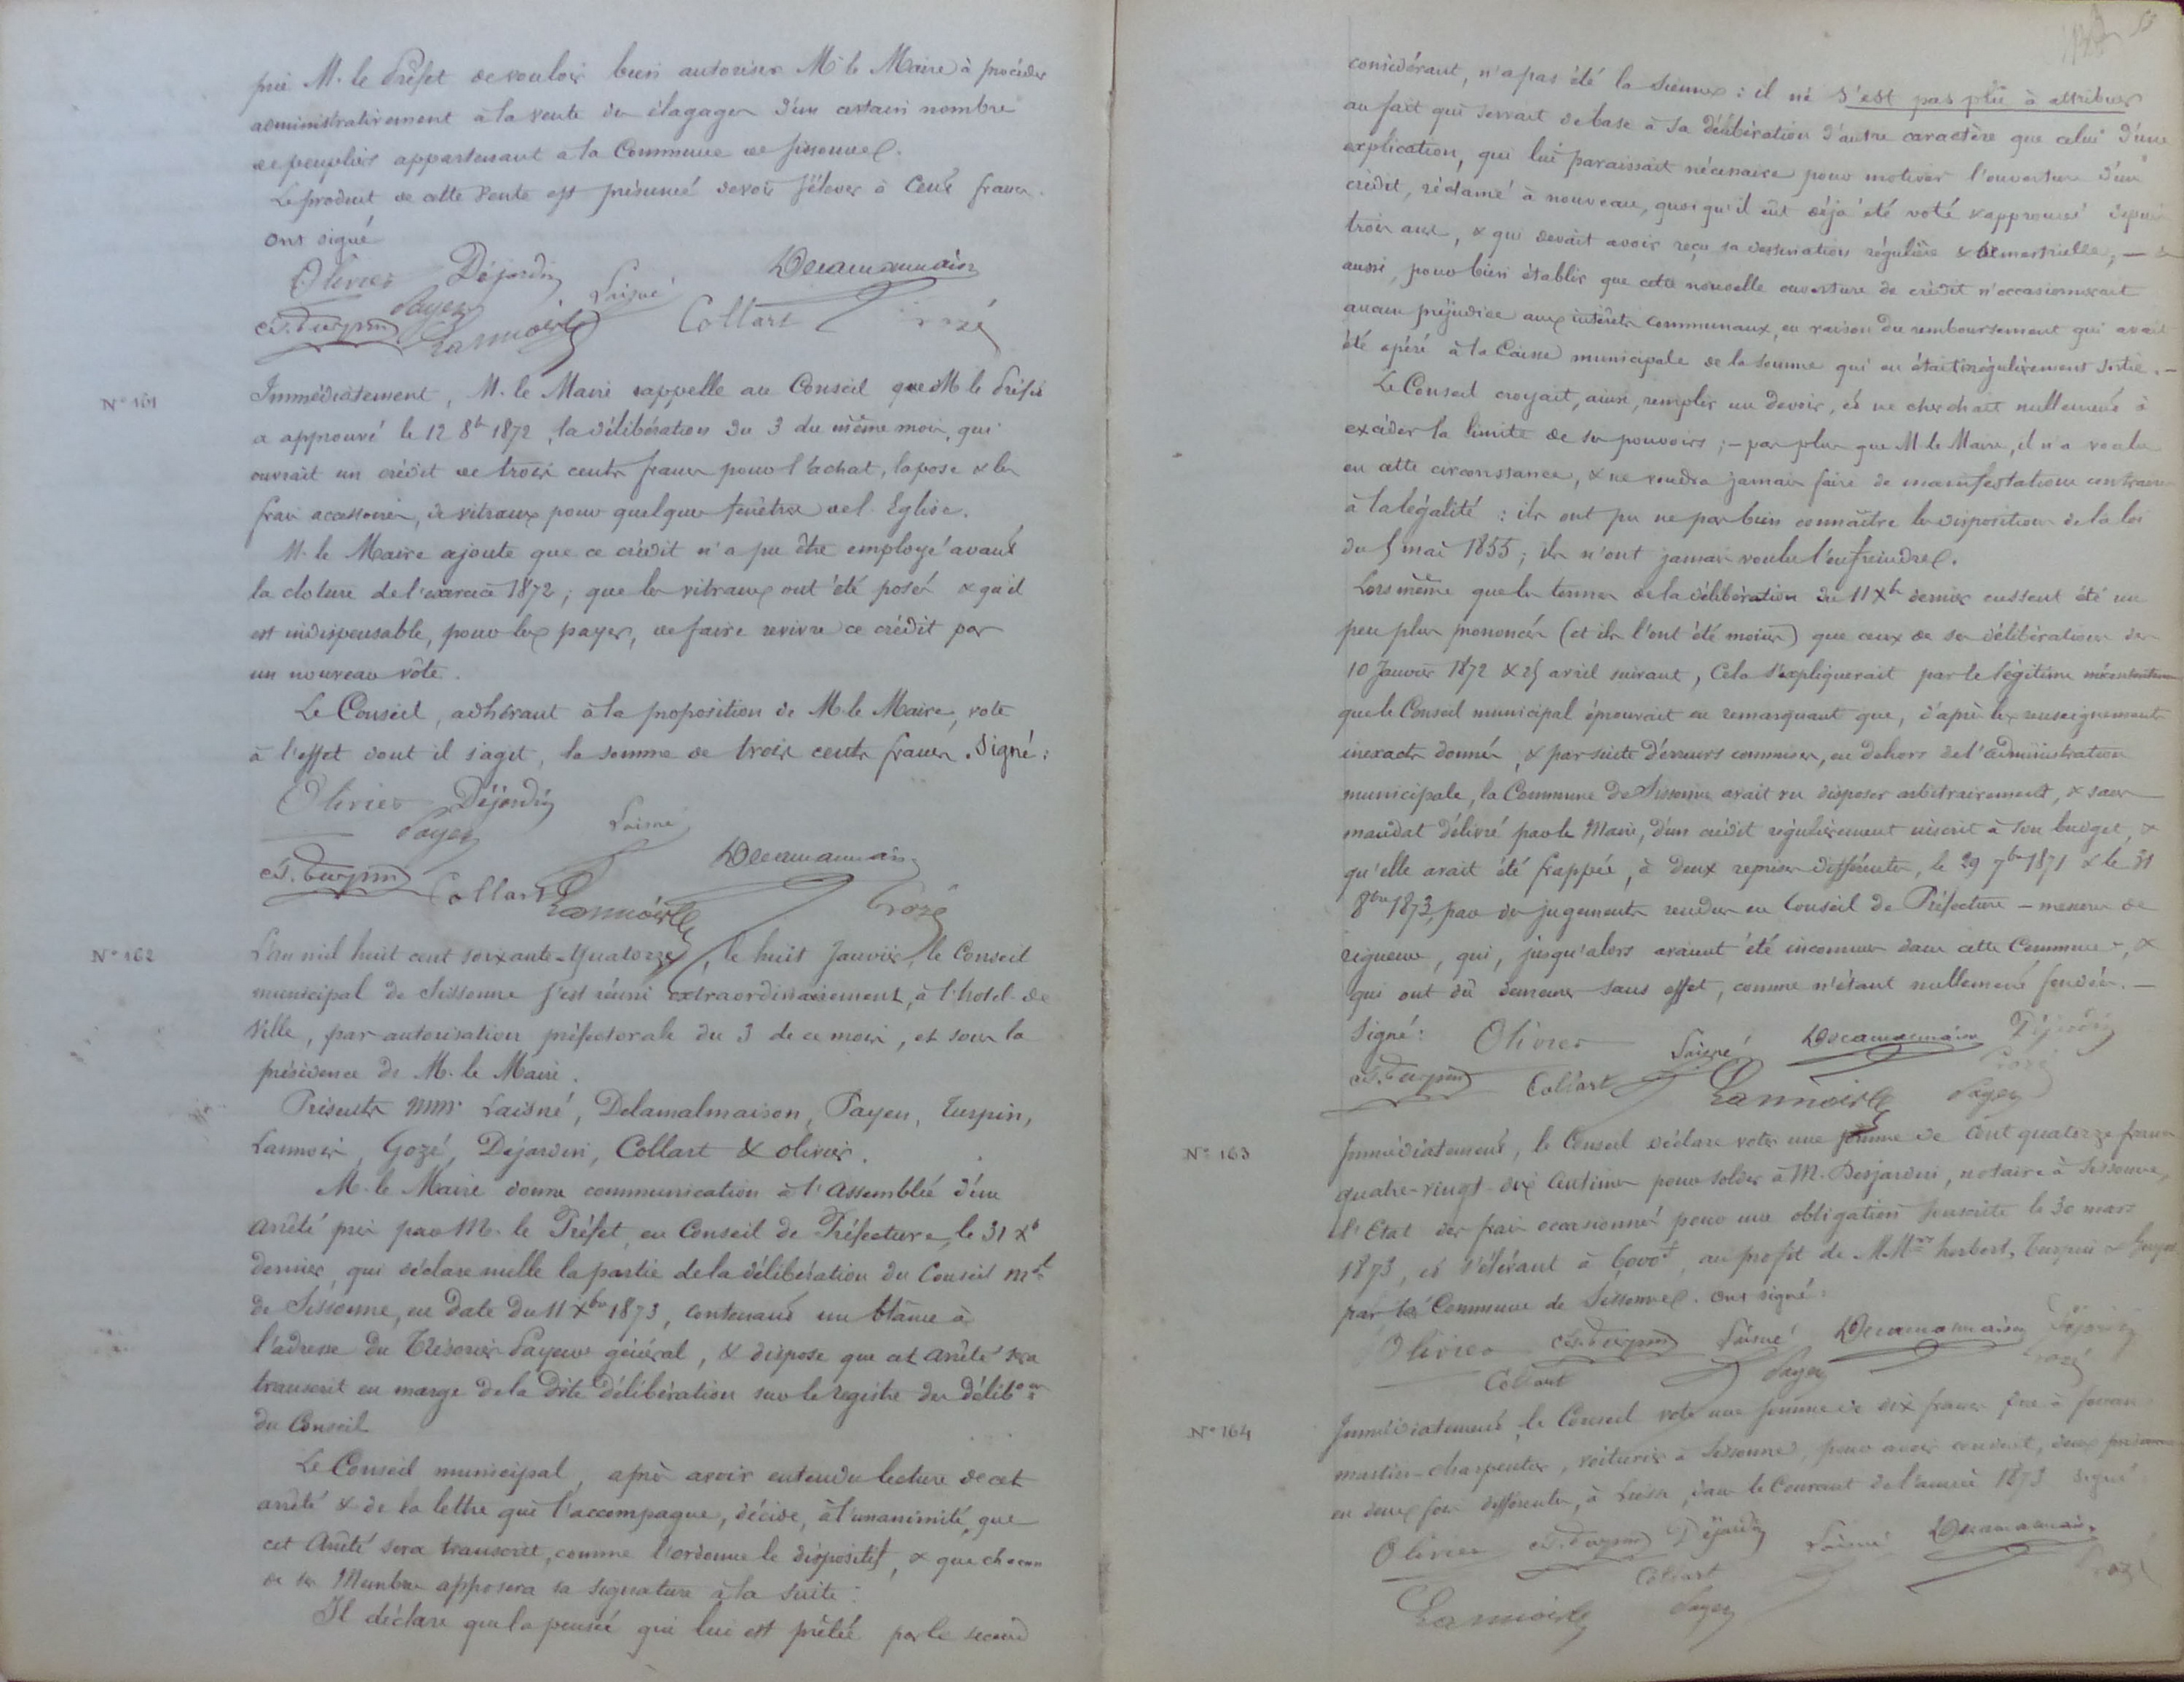 prie M. le Préfet de vouloir bien autoriser M. le Maire à procéder
administrativement à la vente des élagages d'un certain nombre
de peupliers appartenant à la Commune de Sissonne.
Le produit de cette vente est présumé devoir s'élever à Cent francs.
Ont signé
Olivier Déjardin Laisné Delamalmaison
Ch. Turpin Payen Lannois Collart Gozé
N° 161
Immédiatement, M. le Maire rappelle au Conseil que M. le Préfet
a approuvé le 12 8bre 1872, la délibération du 3 du même mois, qui
ouvrait un crédit de trois cents francs pour l'achat, la pose & les
frais accessoires, de vitraux pour quelques fenêtres de l'Eglise.
M. le Maire ajoute que ce crédit n'a pu être employé avant
la cloture de l'exercice 1872 ; que les vitraux ont été posés & qu'il
est indispensable, pour les payer, de faire revivre ce crédit par
un nouveau vôte.
Le Conseil, adhérant à la proposition de M. le Maire, vote
à l'effet dont il s'agit, la somme de trois cents francs. Signé :
Olivier Déjardin
Payen Laisné
Ch. Turpin Collart Lannois Delamalmaison Gozé
N° 162
L'an mil huit cent soixante-quatorze, le huit Janvier, le Conseil
municipal de Sissonne s'est réuni extraordinairement, à l'hotel de
Ville, par autorisation préfectorale du 3 de ce mois, et sous la
présidence de M. le Maire.
Présents MMrs Laisné, Delamalmaison, Payen, Turpin,
Lannois, Gozé, Dejardin, Collart & Olivier.
M. le Maire donne communication à l'Assemblée d'un
arrêté pris par M. le Préfet, en Conseil de Préfecture, le 31 Xb
dernier, qui déclare nulle la partie de la délibération du Conseil mal
de Sissonne, en date du 11 Xbre 1873, contenant un blâme à
l'adresse du Trésorier Payeur général, & dispose que cet arrêté sera
transcrit en marge de la dite délibération sur le registre des délibons
du Conseil
Le Conseil municipal, après avoir entendu lecture de cet
arrêté & de la lettre qui l'accompagne, décide, à l'unanimité, que
cet Arrêté sera transcrit, comme l'ordonne le dispositif, & que chacun
de ses Membres apposera sa signature à la suite :
Il déclare que la pensée qui lui est prêtée par le second
55
considérant, n'a pas été la sienne : il ne s'est pas plu à attribuer
au fait qui servait de base à sa délibération d'autre caractère que celui d'une
explication, qui lui paraissait nécessaire pour motiver l'ouverture d'un
crédit, réclamé à nouveau, quoiqu'il eût déjà été voté & approuvé depuis
trois ans, & qui devait avoir reçu sa destination régulière & ; —
aussi, pour bien établir que cette nouvelle ouverture de crédit n'occasionnerait
aucun préjudice aux intérêts communaux, en raison du remboursement qui avait
été opéré à la Caisse municipale de la somme qui en était irrégulièrement sortie. —
Le Conseil croyait, ainsi, remplir un devoir, et ne cherchait nullement à
excéder la limite de ses pouvoirs ; — pas plus que M. le Maire, il n'a voulu
en cette circonstance, & ne voudra jamais faire de manifestations contraires
à la légalité : ils ont pu ne pas bien connaître les dispositions de la loi
du 5 mai 1855 ; ils n'ont jamais voulu l'enfreindre.
Lors même que les termes de la délibération du 11 Xbre dernier eussent été un
peu plus prononcés (et ils l'ont été moins) que ceux de ses délibérations des
10 Janvier 1872 & 25 avril suivant, Cela s'expliquerait par le légitime mécontentement
que le Conseil municipal éprouvait en remarquant que, d'après les renseignements
inexacts donnés, & par suite d'erreurs commises, en dehors de l'administration
municipale, la Commune de Sissonne avait vu disposer arbitrairement, & sans
mandat délivré par le Maire, d'un crédit régulièrement inscrit à son budget, &
qu'elle avait été frappée, à deux reprises différentes, le 29 7bre 1871 & le 31
8bre 1873, par des jugements rendus en Conseil de Préfecture — mesures de
rigueur, qui, jusqu'alors avaient été inconnues dans cette Commune, &
qui ont dû demeurer sans effet, comme n'étant nullement fondées. —
Signé : Olivier Laisné Delamalmaison Déjardin
Ch. Turpin Collart Lannois Payen Gozé
N° 163
Immédiatement, le Conseil déclare voter une somme de Cent quatorze francs
quatre-vingt-dix Centimes pour solder à M. Desjardin, notaire à Sissonne,
l'Etat des frais occasionnés pour une obligation souscrite le 30 mars
1873, et s'élevant à 6000f, au profit de MMrs herbert, Turpin &
par la Commune de Sissonne. Ont signé :
Olivier Ch. Turpin Laisné Delamalmaison Déjardin
Collart Payen Gozé
N° 164
Immédiatement, le Conseil vote une somme de dix francs due à
martin-charpentier, voiturier à Sissonne, pour avoir conduit, deux
en deux fois différentes, à , dans le Courant de l'année 1873 Signé
Olivier Ch. Turpin Déjardin Laisné Delamalmaison
Lannois Collart Payen Gozé